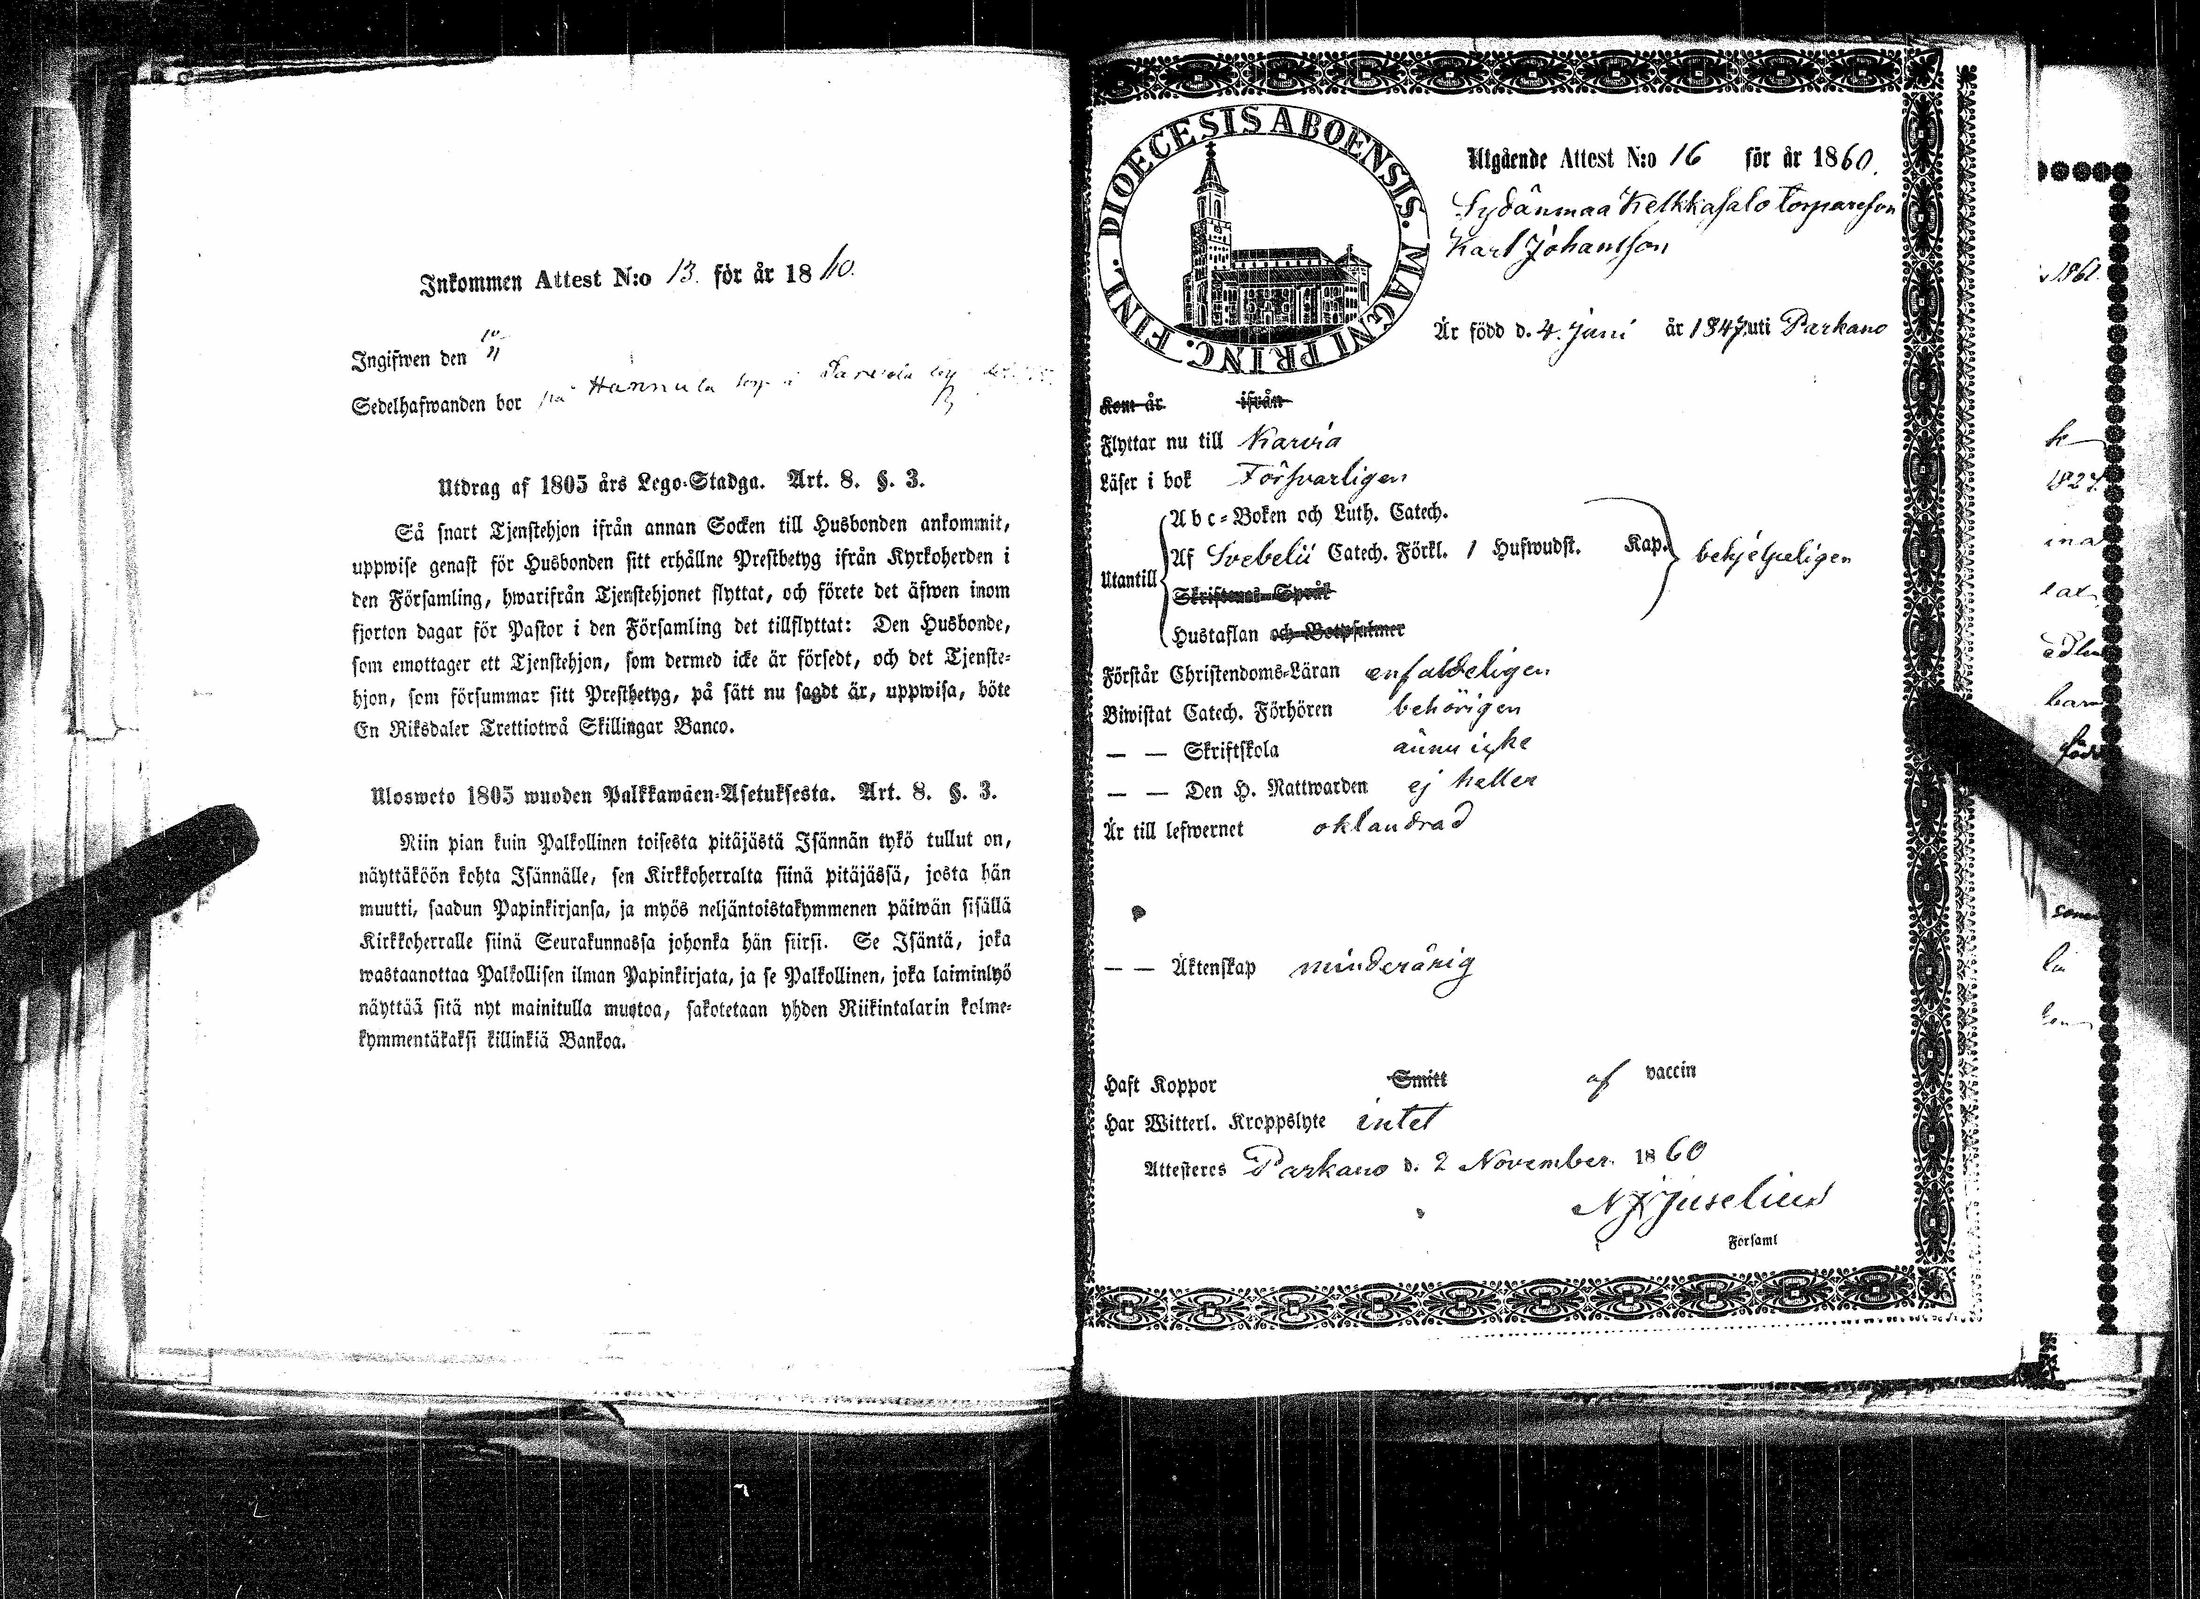 Inkommen Attest N:o 13. för år 1860.
Ingifwen den 10/11
Sedelhafwanden bor på Hannula torp i by
Utdrag af 1805 års Lego-Stadga. Art. 8. §. 3.
Så snart Tjenstehjon ifrån annan Socken till Husbonden ankommit,
uppwise genast för Husbonden sitt erhållne Prestbetyg ifrån Kyrkoherden i
den Församling, hwarifrån Tjenstehjonet flyttat, och förete det äfwen inom
fjorton dagar för Pastor i den Församling det tillflyttat: Den Husbonde,
som emottager ett Tjenstehjon, som dermed icke är försedt, och det Tjenste-
hjon, som försummar sitt Prestbetyg, på sätt nu sagdt är, uppwisa, böte
En Riksdaler Trettiotwå Skillingar Banco.
Ulosweto 1805 wuoden Palkkawäen-Asetuksesta. Art. 8. §. 3.
Niin pian kuin Palkollinen toisesta pitäjästä Isännän tykö tullut on,
näyttäköön kohta Isännälle, sen Kirkkoherralta siinä pitäjässä, josta hän
muutti, saadun Papinkirjansa, ja myös neljäntoistakymmenen päiwän sisällä
Kirkkoherralle siinä Seurakunnassa johonka hän siirsi. Se Isäntä, joka
wastaanottaa Palkollisen ilman Papinkirjata, ja se Palkollinen, joka laiminlyö
näyttää sitä nyt mainitulla muotoa, sakotetaan yhden Riikintalarin kolme-
kymmentäkaksi killinkiä Bankoa.
DIOECESIS ABOENSIS. MAGNI PRINC. FINL.
Utgående Attest N:o 16 för år 1860.
Sydänmaa Kelkkasalo torpareson
Karl Johansson
Är född d. 4. Juni år 1847. uti Parkano
Kom år ifrån
Flyttar nu till Karvia
Läser i bok Försvarligen
Utantill
Abc-Boken och Luth. Catech.
Af Svebelii Catech. Förkl. 1 Hufwudst. Kap. behjelpeligen
Skriftenes Språk
Hustaflan och Botpsalmer
Förstår Christendoms-Läran enfaldeligen
Biwistat Catech. Förhören behörigen
— — Skriftskola ännu icke
— — Den H. Nattwarden ej heller
Är till lefwernet oklandrad
— — Äktenskap minderårig
Haft Koppor Smitt af vaccin
Har Witterl. Kroppslyte intet
Attesteras Parkano d. 2 November. 1860
Juselius
Församl